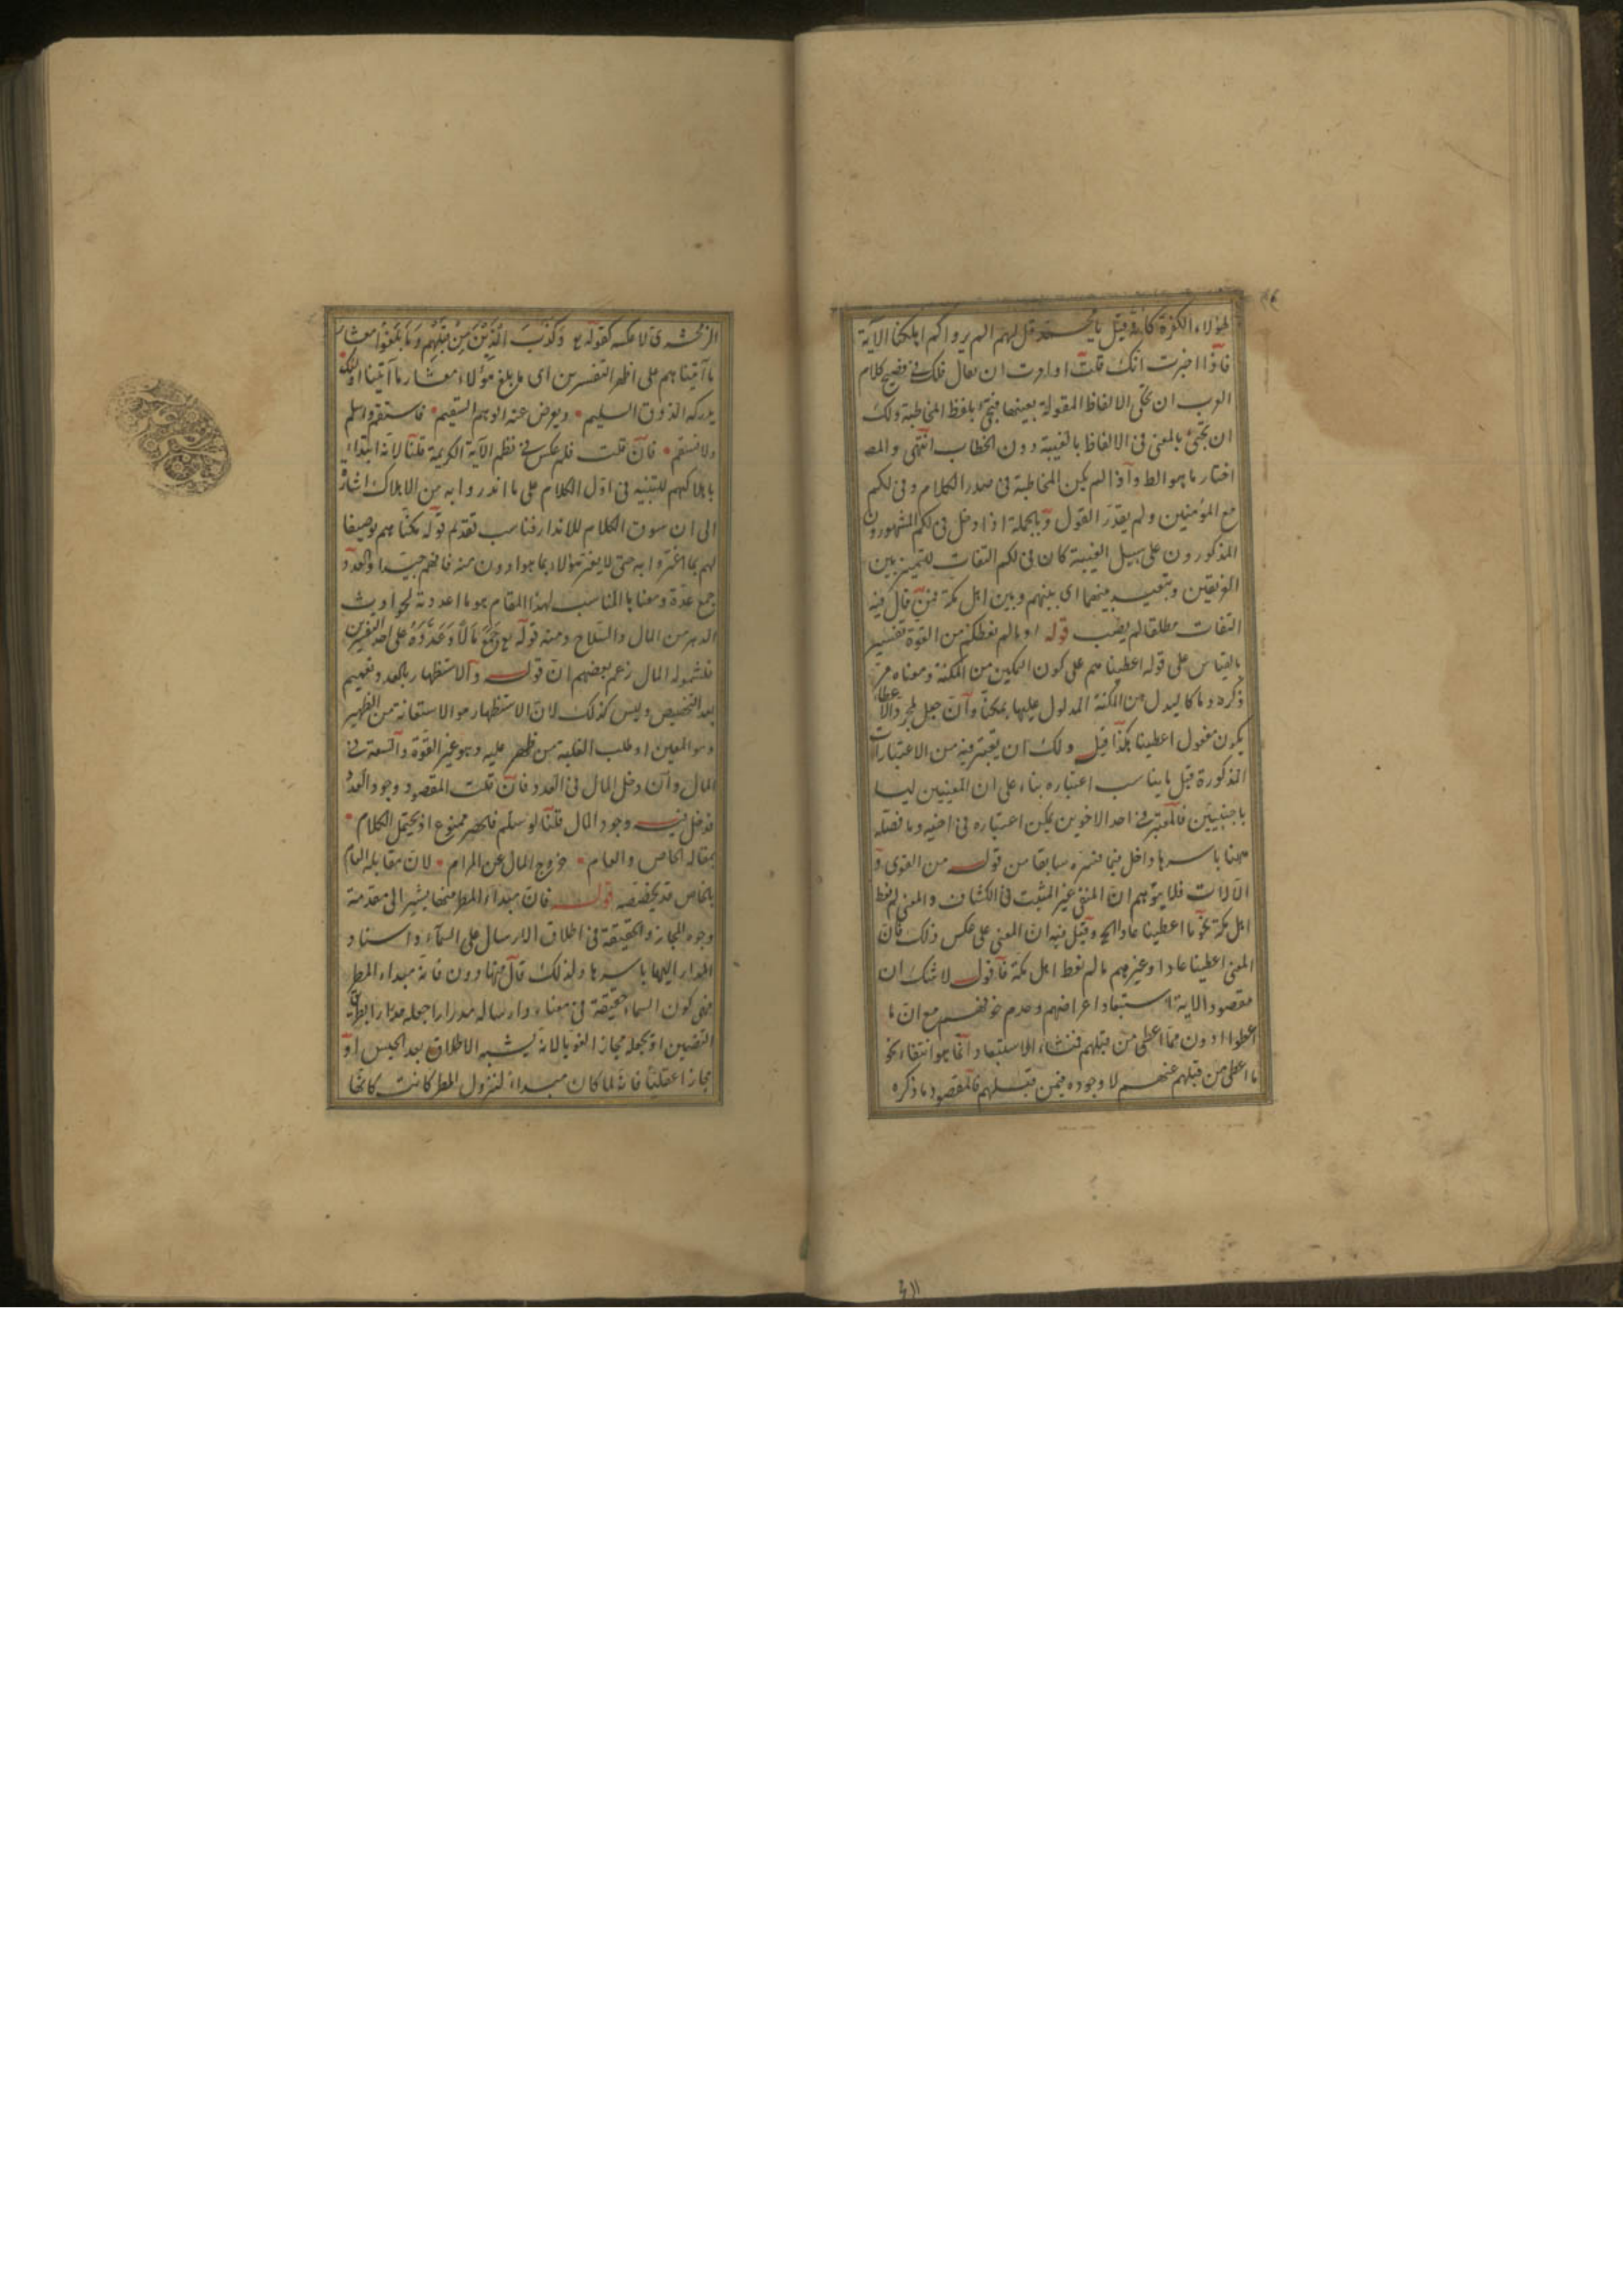 لهؤلاء الكفرة كأنه قيل يا محمد قل لهم الم يروا كم اهلكنا الآية
فاذا اخبرت انك قلت او امرت ان يقال فلك في فصيح كلام
العرب ان تحكي الالفاظ المقولة بعينها فتجئ بلفظ المخاطبة ولك
ان تجئ بالمعنى في الالفاظ بالغيبة دون الخطاب انتهى والمص
اختار ما هو الظ واذا لم يكن المخاطبة في صدر الكلام وفي لكم
مع المؤمنين ولم يقدر القول وبالجملة اذا دخل في لكم المشهورون
المذكورون على سبيل الغيبة كان في لكم التفات للتمييز بين
الفريقين وبتعيين بينهما اى بينهم وبين اهل مكة فمن قال فيه
التفات مطلقا لم يصب قوله او ما لم نعطكم من القوة تفسير
بالقياس على قوله اعطيناهم على كون التمكين من المكنة ومعناه مر
ذكره وما كا ليدل من المكنة المدلول عليها بمكنا وان جعل لمجرد الاعطاء
يكون مفعول اعطينا هكذا قيل ولك ان تعتبر فيه من الاعتبارات
المذكورة قبل ما يناسب اعتباره بناء على ان المعنيين ليسا
باجنبيين فالمعتبر في احد الاخوين يمكن اعتباره في اخيه وما فصله
ههنا باسرها داخل فيما فسره سابقا من قوله من القوى و
الآلات فلا يتوهم ان المنفي غير المثبت في الكشاف والمعنى لم نعط
اهل مكة نحو ما اعطينا عادا الخ وقيل فيه ان المعنى على عكس ذلك فان
المعنى اعطينا عادا وغيرهم ما لم نعط اهل مكة فاقول لا شك ان
مقصود الاية استبعاد اعراضهم وعدم خوفهم مع ان ما
اعطوا ادون مما اعطى من قبلهم فمنشاء الاستبعاد انما هو انتفاء نحو
ما اعطى من قبلهم عنهم لا وجوده فيمن قبلهم فالمقصود ما ذكره
الزمخشري لا عكسه كقوله تع وَكَذَّبَ الَّذِينَ مِنْ قَبْلِهِمْ وَمَا بَلَغُوا معشار
ما آتيناهم على اظهر التفسيرين اى ما بلغ هؤلاء معشار ما آتينا اولئك
يدركه الذوق السليم ويعرض عنه الوهم السقيم فاستقم واسلم
ولا فستقم فان قلت فلم عكس في نظم الآية الكريمة قلنا لانه ابتداء
باهلاكهم للتنبيه في اول الكلام على ما انذروا به من الاهلاك اشارة
الى ان سوق الكلام للانذار فناسب تقديم قوله مكناهم توصيفا
لهم بما اغتروا به حتى لا يغتر هؤلاء بما هو ادون منه فافهم جيدا والعدد
جمع عدة ومعناها المناسب لهذا المقام هو ما اعددته لحوادث
الدهر من المال والسلاح ومنه قوله تع جَمَعَ مَالًا وَعَدَّدَهُ على احد التفسيرين
فلشموله المال زعم بعضهم ان قوله والاستظهار بالعدد تعميم
بعد التخصيص وليس كذلك لان الاستظهار هو الاستعانة من الظهير
وهو المعين او طلب الغلبة من ظهر عليه وهو غير القوة والسعة في
المال وان دخل المال في العدد فان قلت المقصود وجود العدد
فدخل فيه وجود المال قلنا لو سلم فالحصر ممنوع اذ يحتمل الكلام
بمقابلة الخاص والعام خروج المال عن المرام لان مقابلة العام
بالخاص قد يخصصه قوله فان مبداء المطر منها يشير الى مقدمة
وجوه المجاز والحقيقة في اطلاق الارسال على السماء واسناد
المدرار اليها باسرها ولذلك قال ههنا دون فانه مبداء المطر
فهى كون السماء حقيقة في معناه وارساله مدرارا جعله مدرارا بطريق
التضمين او بجعله مجازا لغويا لانه يشبه الاطلاق بعد الحبس او
مجازا عقليا فانه لما كان مبداء لنزول المطر كانت كانها